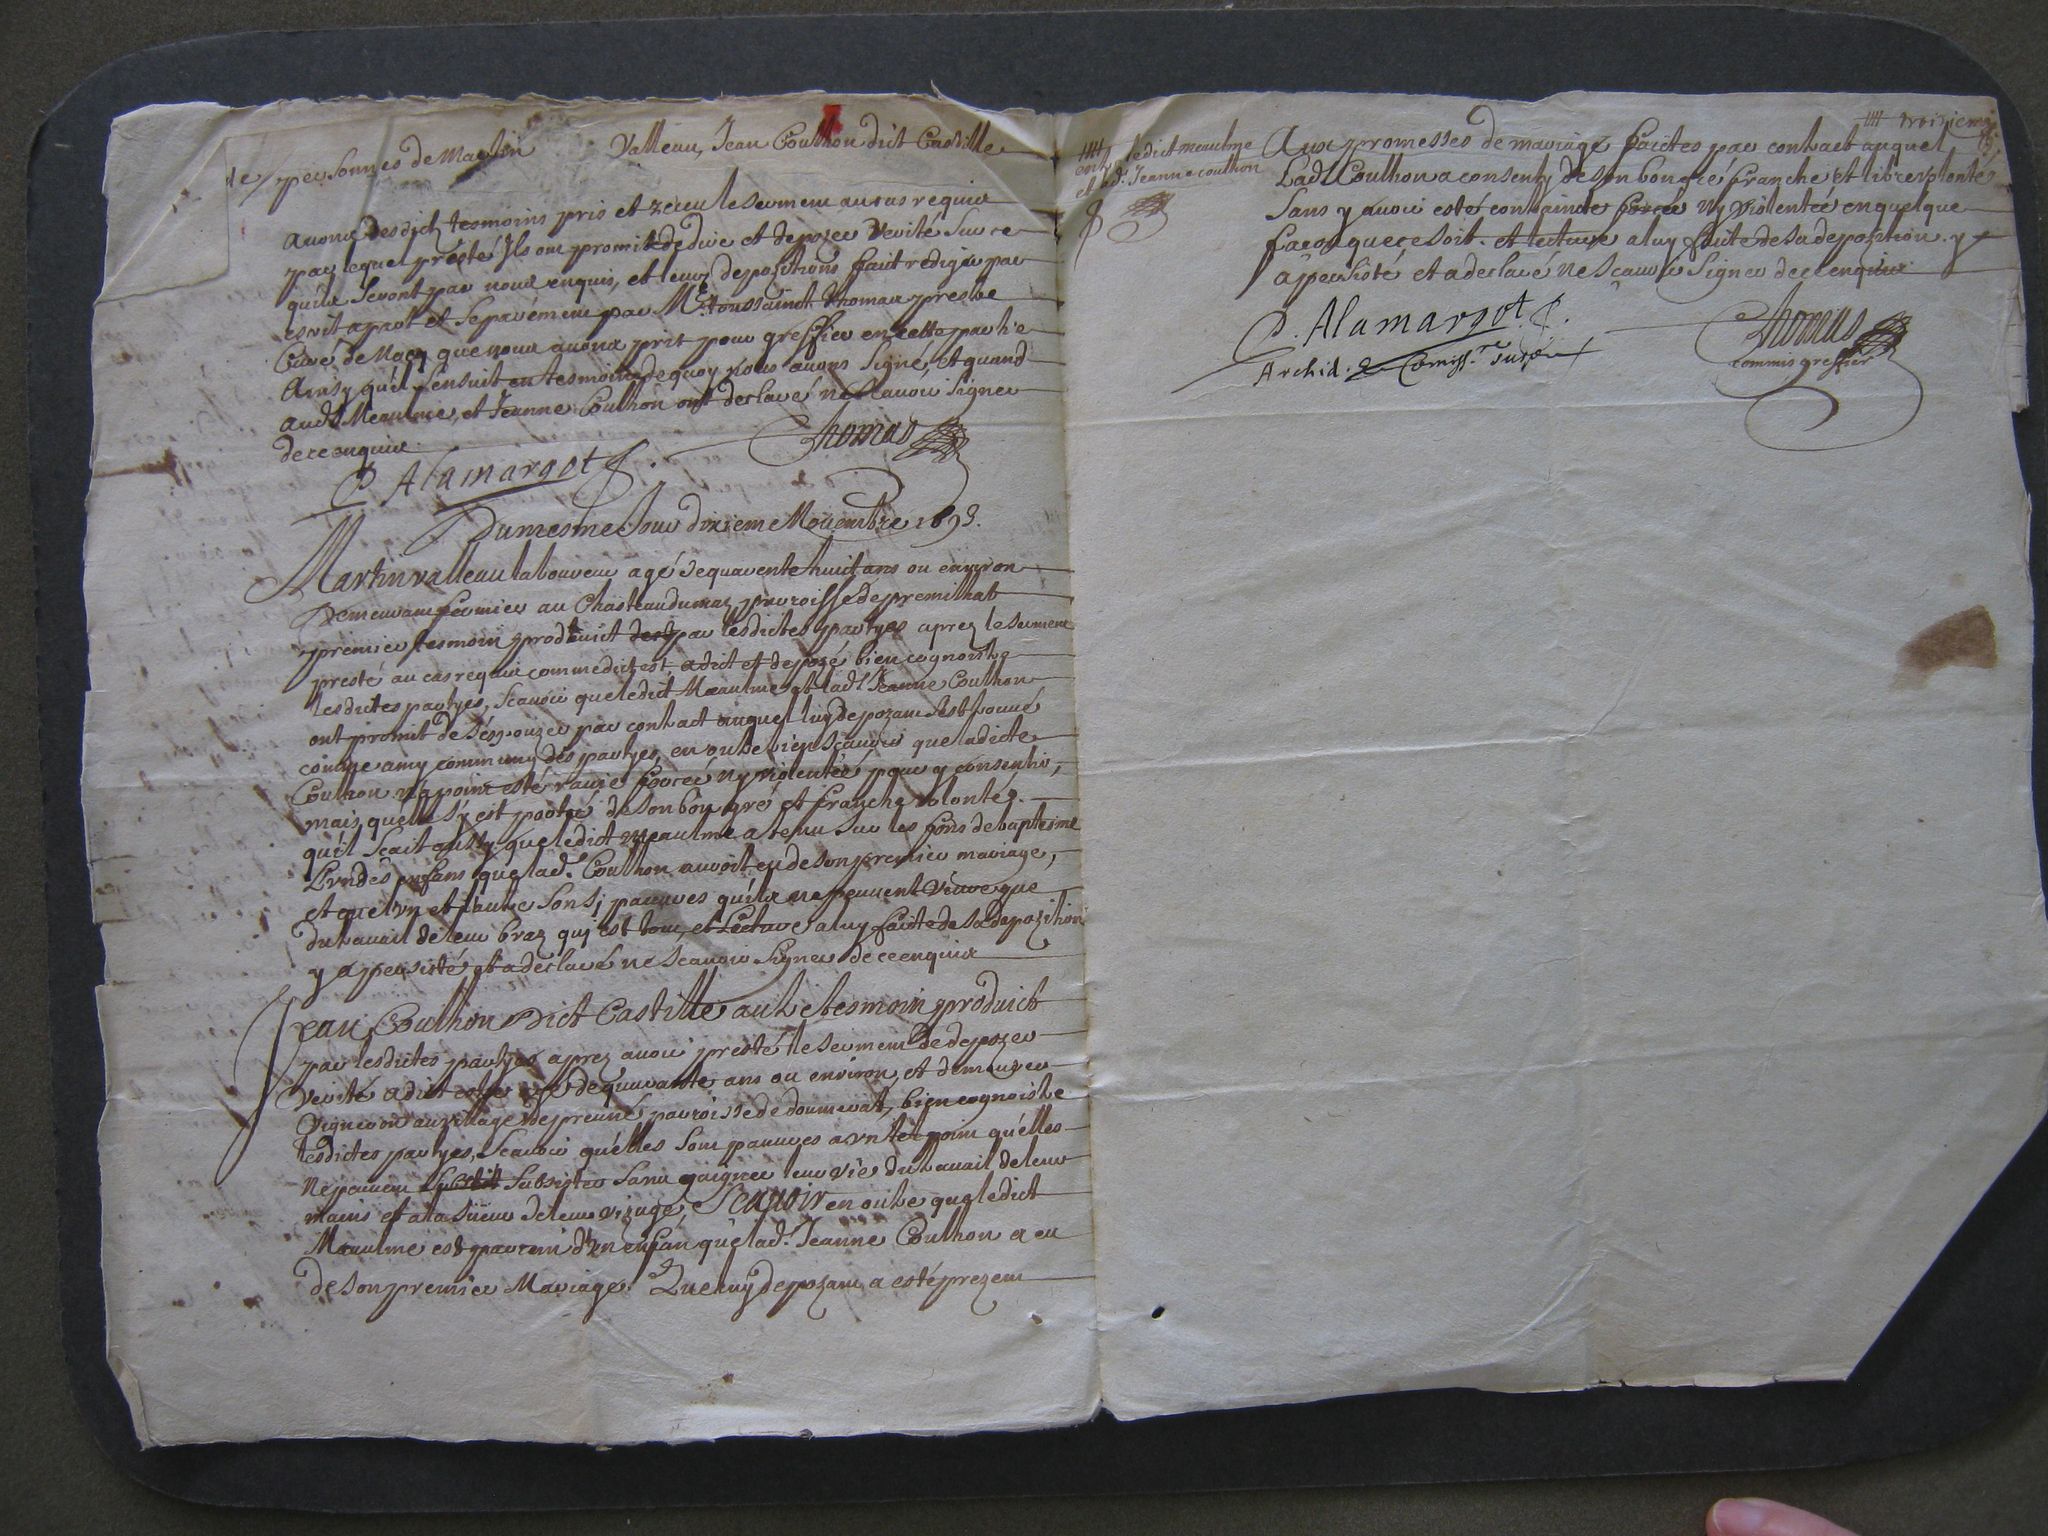 de personnes de Martin Valleau, Jean Coulhon dict Castille
avons desdictz tesmoins pris et receu le serment au cas requis
par lequel presté Ils ont promit de dire et depozer verité sur ce
quils seront par nous enquis, et leurs depozitions fait rediger par
escrit apart et separement par Me. toussainct Thomas presbe
Curé de que nous avons pris pour greffier en cette partie
Ainsy quil sensuit en tesmoins de quoy nous avons signé, et quand
aud. Meaulme, et Jeanne Coulhon ont desclaré ne scavoir signer
de ce enquis
P. Alamargot Thomas
Du mesme Jour dixieme Novembre 1693.
Martin valleau laboureur agé de quarente huict ans ou environ
Demeurant fermier au Chasteau dumas parroisse de premilhat
premier tesmoin produict par lesdictes partyes aprez le serment
presté au cas requis comme dict est a dict et depozé bien cognoistre
lesdictes partyes, scavoir que ledict Meaulme et lad. Jeanne Coulhon
ont promit de sespouzer par contract auquel luy depozant sest trouvé
comme amy commung des partyes, en outre bien scavoir que ladicte
Coulhon na point esté ravie forcée ny violentée pour y consentir,
mais quelle sy est portée de son bon gré et franche volonté.
quil scait aussy que ledict Meaulme a tenu sur les fons de baptesme
Lun des enfans que lad. Coulhon auroit eu de son premier mariage,
et que lun et lautre sont si pauvres quils ne peuvent vivre que
du travail de leur braz qui est tout, et Lecture a luy faicte de sa depozition
y a persisté et a desclaré ne scavoir signer de ce enquis
Jean Coulhon Dict Castille autre tesmoin produict
par lesdictes partyes aprez avoir presté le serment de depozer
verité a dict estre agé de quarante ans ou environ, et demeurer
Vigneron au village de preuné parroisse de doumerat, bien cognoistre
lesdictes partyes, scavoir quelles sont pauvres a un tel point quelles
ne peuvent subsister sans gaigner leur vie du travail de leur
mains et a la sueur de leur vizage, Scavoir en outre que ledict
Meaulme est parrein dun enfan que lad. Jeanne Coulhon a eu
de son premier Mariage. Que luy depozant a esté prezent
troizieme
entre ledict meaulme
et lad. Jeanne coulhon
Aux promesses de mariage faictes par contract auquel
Lad. Coulhon a consenty de son bon gré franche et libre volonté
sans y avoir esté contrainte forcée ny violentée en quelque
facon que ce soit. et lecture a luy faicte de sa depozition y
a persisté et a desclaré ne scavoir signer de ce enquis
P. Alamargot
Archid. & Comiss.re Thomas
commis greffier